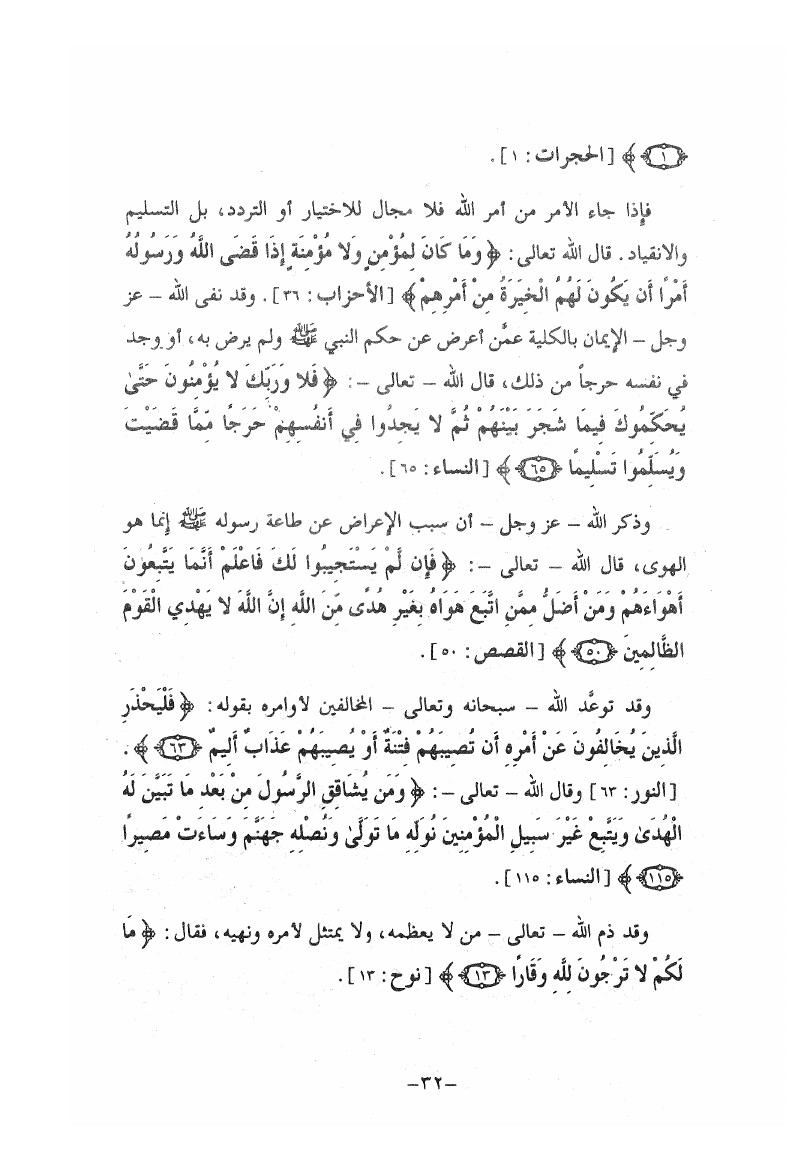 ﴿١﴾ [الحجرات: ١].
فإذا جاء الأمر من أمر الله فلا مجال للاختيار أو التردد، بل التسليم
والانقياد. قال الله تعالى: ﴿ وَمَا كَانَ لِمُؤْمِنٍ وَلا مُؤْمِنَةٍ إِذَا قَضَى اللَّهُ وَرَسُولُهُ
أَمْرًا أَن يَكُونَ لَهُمُ الْخِيَرَةُ مِنْ أَمْرِهِمْ ﴾ [الأحزاب: ٣٦]. وقد نفى الله – عز
وجل – الإيمان بالكلية عمَّن أعرض عن حكم النبي ﷺ ولم يرض به، أو وجد
في نفسه حرجاً من ذلك، قال الله – تعالى –: ﴿ فَلا وَرَبِّكَ لا يُؤْمِنُونَ حَتَّىٰ
يُحَكِّمُوكَ فِيمَا شَجَرَ بَيْنَهُمْ ثُمَّ لا يَجِدُوا فِي أَنفُسِهِمْ حَرَجًا مِّمَّا قَضَيْتَ
وَيُسَلِّمُوا تَسْلِيمًا ﴿٦٥﴾ ﴾ [النساء: ٦٥].
وذكر الله – عز وجل – أن سبب الإعراض عن طاعة رسوله ﷺ إنما هو
الهوى، قال الله – تعالى –: ﴿ فَإِن لَّمْ يَسْتَجِيبُوا لَكَ فَاعْلَمْ أَنَّمَا يَتَّبِعُونَ
أَهْوَاءَهُمْ وَمَنْ أَضَلُّ مِمَّنِ اتَّبَعَ هَوَاهُ بِغَيْرِ هُدًى مِّنَ اللَّهِ إِنَّ اللَّهَ لا يَهْدِي الْقَوْمَ
الظَّالِمِينَ ﴿٥٠﴾ ﴾ [القصص: ٥٠].
وقد توعَّد الله – سبحانه وتعالى – المخالفين لأوامره بقوله: ﴿ فَلْيَحْذَرِ
الَّذِينَ يُخَالِفُونَ عَنْ أَمْرِهِ أَن تُصِيبَهُمْ فِتْنَةٌ أَوْ يُصِيبَهُمْ عَذَابٌ أَلِيمٌ ﴿٦٣﴾ ﴾.
[النور: ٦٣] وقال الله – تعالى –: ﴿ وَمَن يُشَاقِقِ الرَّسُولَ مِنْ بَعْدِ مَا تَبَيَّنَ لَهُ
الْهُدَىٰ وَيَتَّبِعْ غَيْرَ سَبِيلِ الْمُؤْمِنِينَ نُوَلِّهِ مَا تَوَلَّىٰ وَنُصْلِهِ جَهَنَّمَ وَسَاءَتْ مَصِيرًا
﴿١١٥﴾ ﴾ [النساء: ١١٥].
وقد ذم الله – تعالى – من لا يعظمه، ولا يمتثل لأمره ونهيه، فقال: ﴿ مَا
لَكُمْ لا تَرْجُونَ لِلَّهِ وَقَارًا ﴿١٣﴾ ﴾ [نوح: ١٣].
–٣٢–